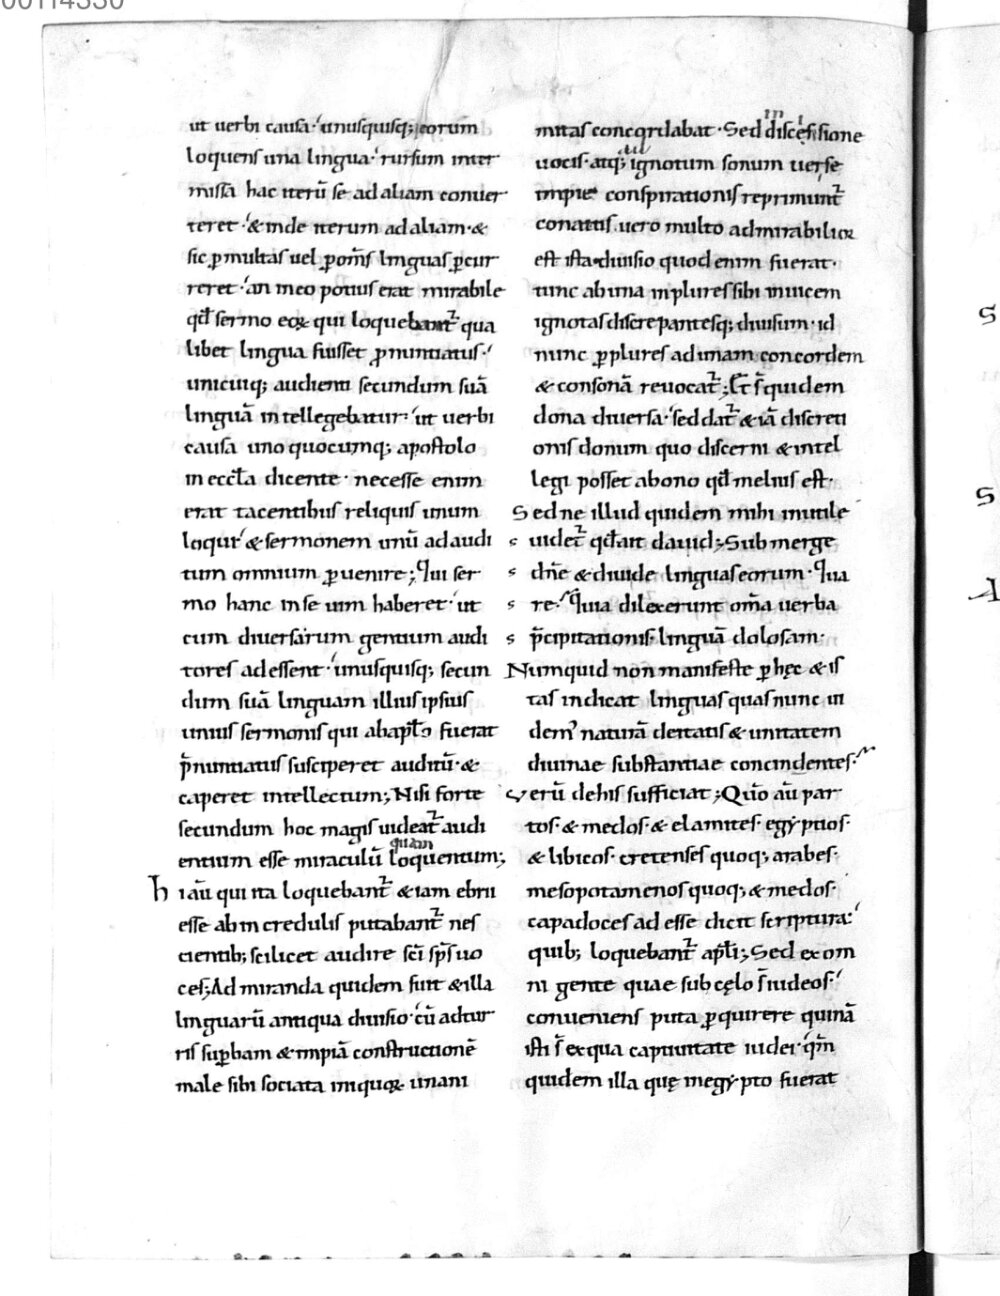 ut uerbi causa· unusquisq; eorum
loquens una lingua· rursum inter
missa hac iterū se ad aliam conuer
teret· & inde iterum ad aliam· &
sic p multas uel p om̄s linguas pcur
reret· an in eo potius erat mirabile
qđ sermo eoꝝ qui loquebant᷑ qua
libet lingua fuisset pnuntiatus·
unicuiq; audienti secundum suā
linguā intellegebatur· ut uerbi
causa uno quocumq; apostolo
in eccła dicente· necesse enim
erat tacentibus reliquis unum
loqui· & sermonem unū ad audi
tum omnium puenire; Qui ser
mo hanc in se uim haberet· ut
cum diuersarum gentium audi
tores adessent· unusquisq; secun
dum suā linguam illius ipsius
unius sermonis qui ab apło fuerat
p̄nuntiatus susciperet auditū· &
caperet intellectum; Nisi forte
secundum hoc magis uideat᷑ audi
entium esse miraculū quam loquentium;
hi aū qui ita loquebant᷑ & iam ebrii
esse ab incredulis putabant᷑ nes
cientib; scilicet audire sc̄i sp̄s uo
ces; Admiranda quidem fuit & illa
linguarū antiqua diuisio· cū ad tur
ris supbam & impiā constructionē
male sibi sociata iniquoꝝ unani
mitas concordabat· Sed in discessione
uocis· atq; ignotum sonum uersę
impię conspirationis reprimunt᷑
conatus. uero multo admirabilior
est ista diuisio quod enim fuerat·
tunc ab una in plures sibi inuicem
ignotas discrepantesq; diuisum· id
nunc p plures ad unam concordem
& consonā reuocat᷑; Er̄ s̄ quidem
dona diuersa· sed dat᷑ & iā discreti
onis donum quo discerni & intel
legi posset a bono qđ melius est·
Sed ne illud quidem mihi inutile
uidet᷑ qđ ait dauid; Submerge
dn̄e & diuide linguas eorum· Qua
re· Quia dilexerunt om̄a uerba
p̄cipitationis· linguā dolosam·
Numquid non manifeste p hęc & is
tas indicat linguas quas nunc in
dem᾽ naturā deitatis & unitatem
diuinae substantiae concindentes·
Uerū de his sufficiat; Quō aū par
tos· & medos· & elamites· egyptios·
& libicos· cretenses quoq; arabes·
mesopotamenos quoq; & medos·
capadoces adesse dicit scriptura·
quib; loquebant᷑ apłi; Sed ex om
ni gente quae sub cęlo s̄ iudeos·
conueniens puta pquirere quinā
isti s̄ ex qua captiuitate iudei· qm̄
quidem illa quę in egypto fuerat